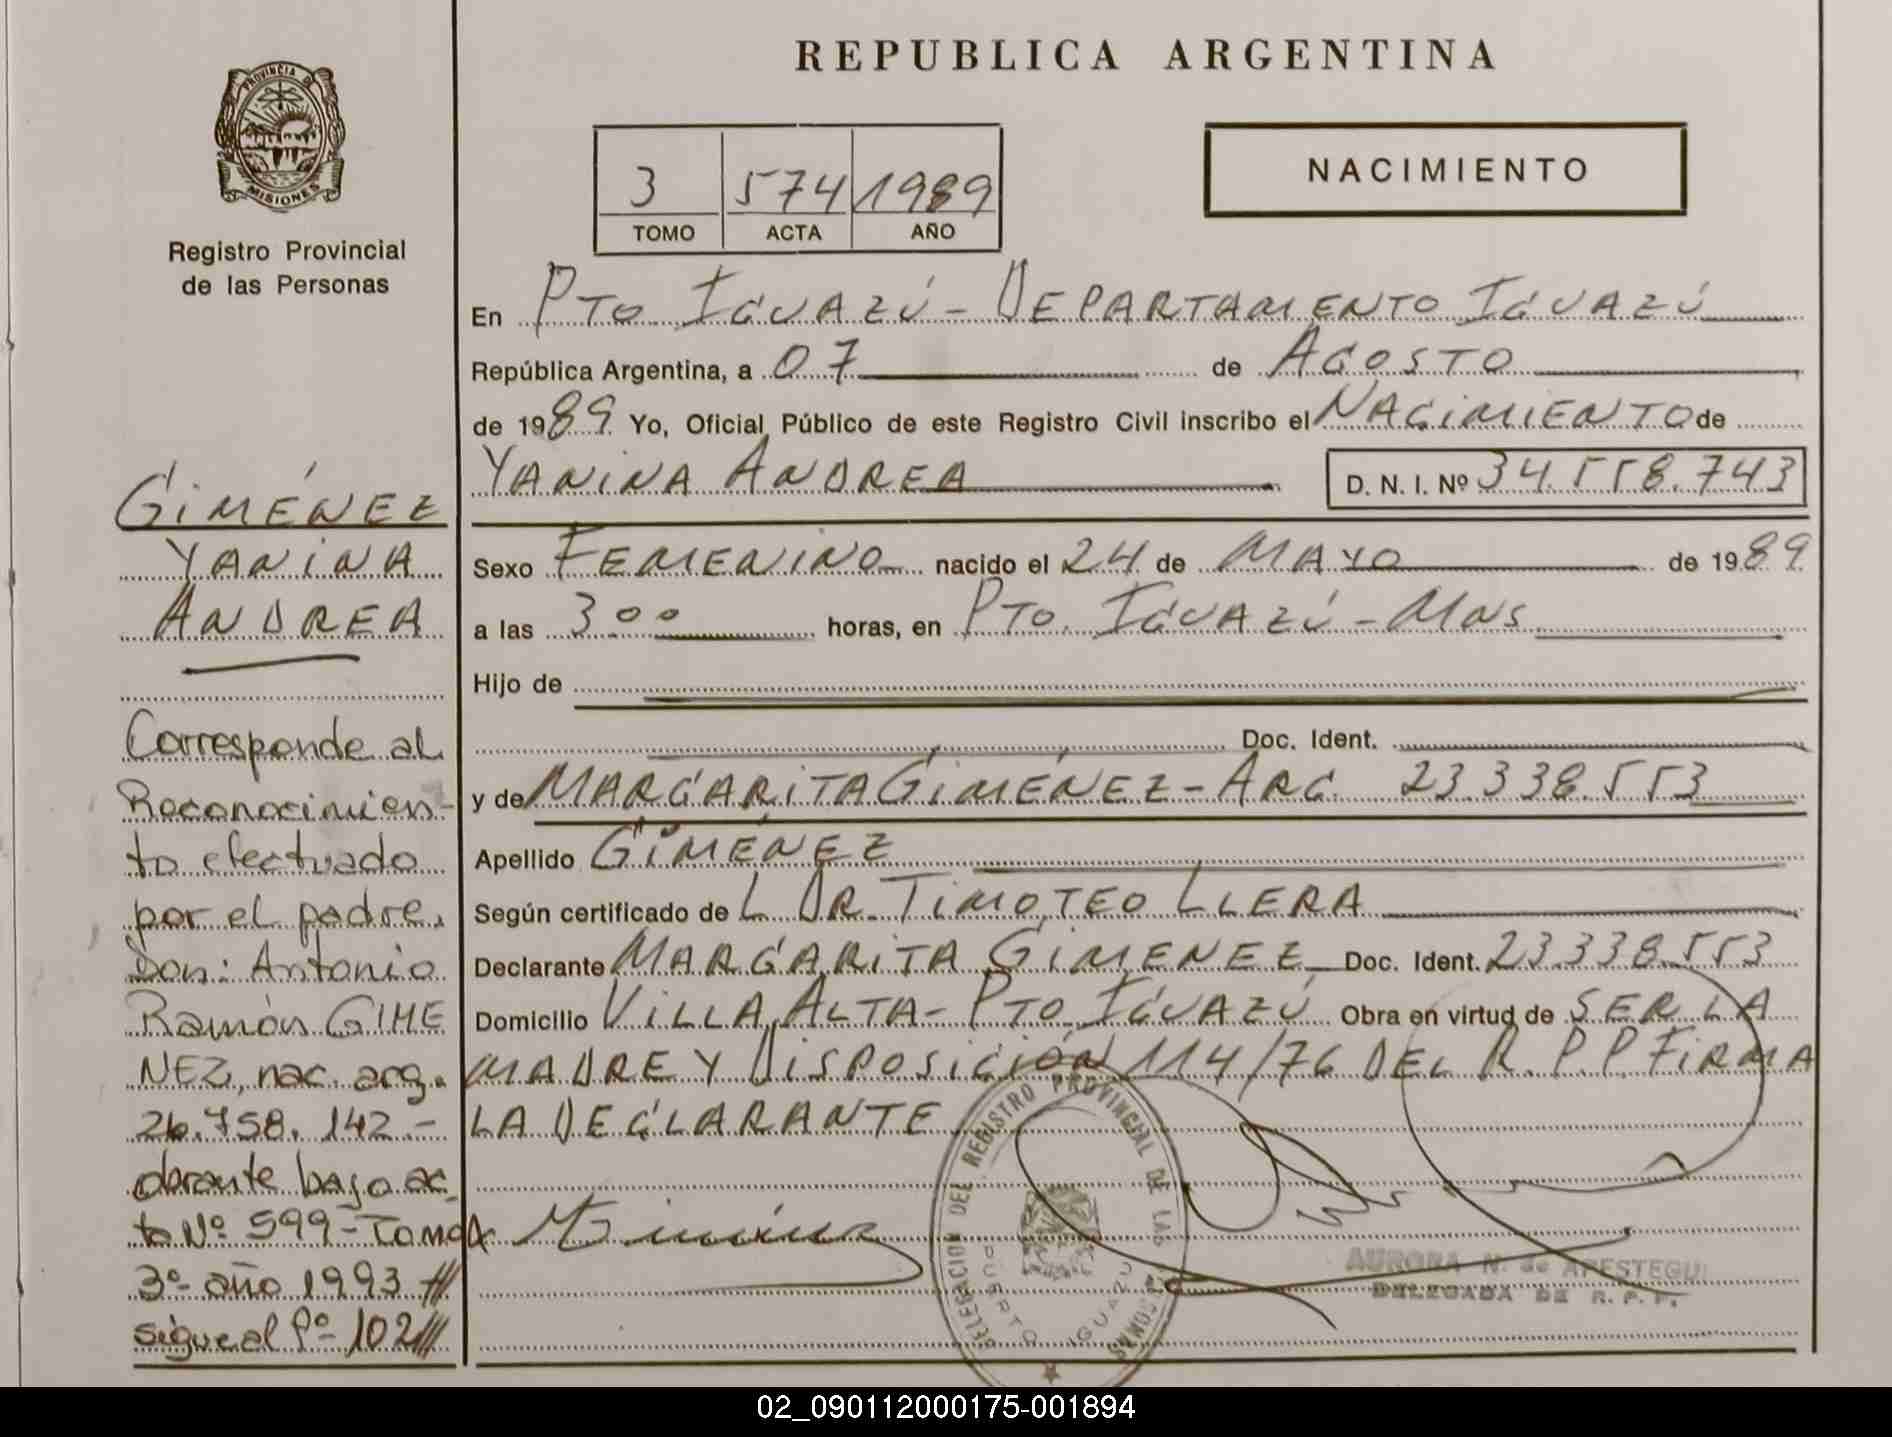 REPUBLICA ARGENTINA
PROVINCIA DE
MISIONES
Registro Provincial
de las Personas
3 574 1989
TOMO ACTA AÑO
NACIMIENTO
En Pto Iguazú - Departamento Iguazú
República Argentina, a 07 de Agosto
de 1989 Yo, Oficial Público de este Registro Civil inscribo el Nacimiento de
Yanina Andrea D. N. I. Nº 34.558.743
Sexo Femenino nacido el 24 de Mayo de 1989
a las 3 oo horas, en Pto. Iguazú - Mns
Hijo de
Doc. Ident.
y de Margarita Giménez - Arg. 23.338.553
Apellido Giménez
Según certificado de L Dr. Timoteo Llera
Declarante Margarita Gimenez Doc. Ident. 23.338.553
Domicilio Villa Alta - Pto Iguazú Obra en virtud de ser la
madre y Disposición 114/76 del R.P.P. Firma
la declarante
GIMÉNEZ
YANINA
ANDREA
Corresponde al
Reconocimien-
to efectuado
por el padre,
Don: Antonio
Ramón GIME
NEZ, nac. arg.
26.758.142.-
obrante bajo ac-
ta Nº 599 - Tomo
3º- año 1993
sigue al Fº- 102
DELEGACION DEL REGISTRO PROVINCIAL DE LAS PERSONAS
PUERTO IGUAZU
AURORA N. de APESTEGUI
DELEGADA DE R. P. P.
02_090112000175-001894